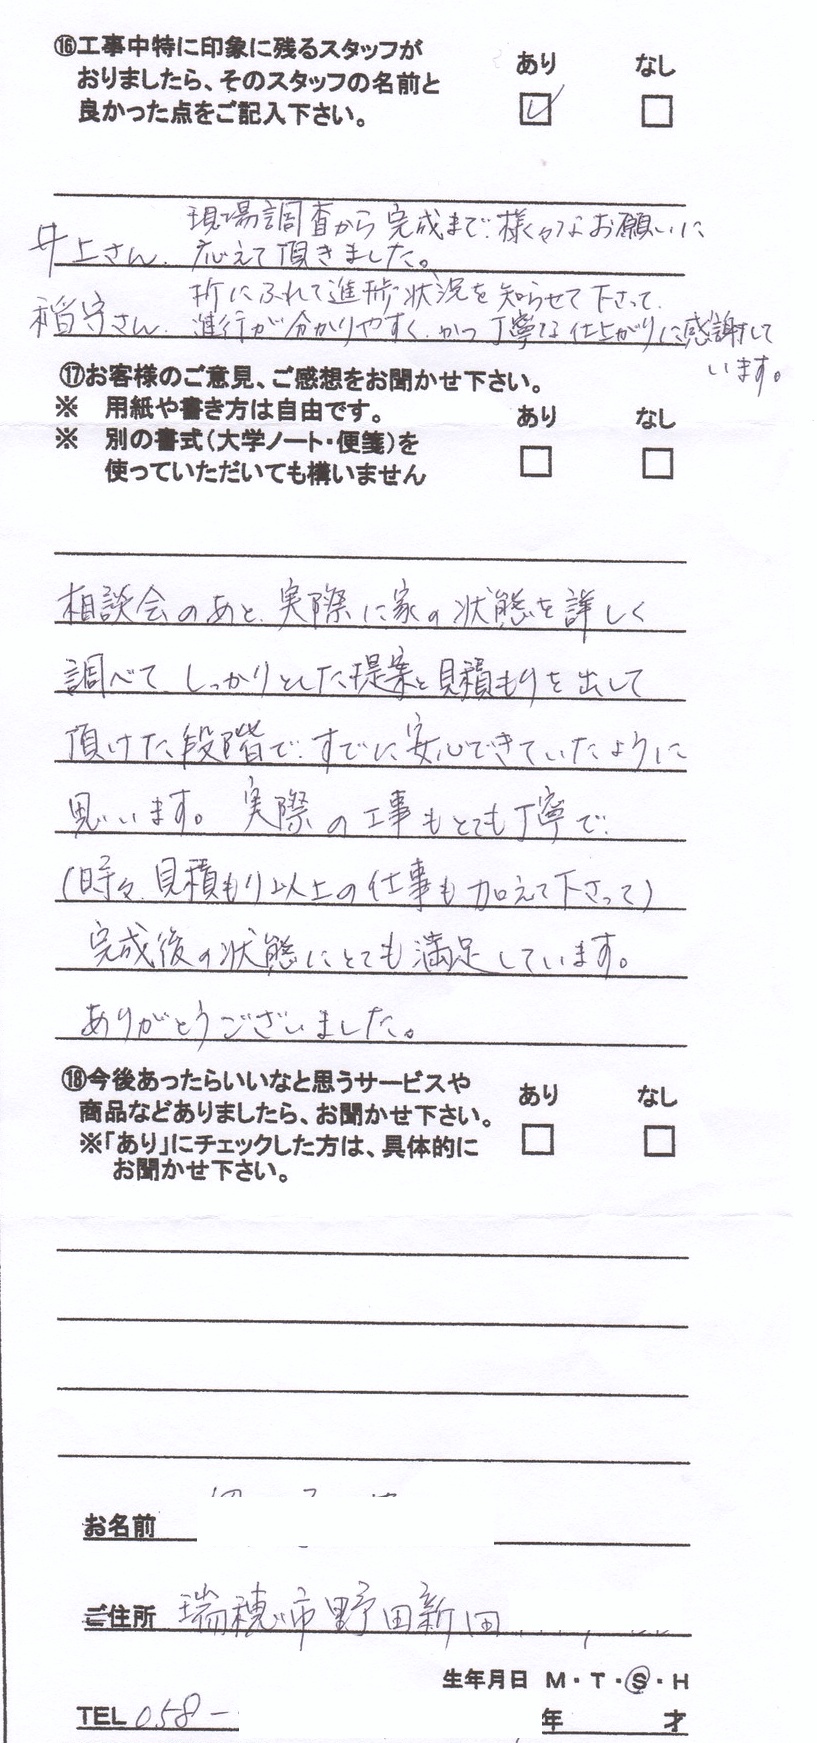 ⑯工事中特に印象に残るスタッフが
おりましたら、そのスタッフの名前と
良かった点をご記入下さい。
あり なし
現場調査から完成まで、様々なお願いに
井上さん、応えて頂きました。
折にふれて進捗状況を知らせて下さって、
稲守さん、進行が分かりやすく、かつ丁寧な仕上がりに感謝して
います。
⑰お客様のご意見、ご感想をお聞かせ下さい。
※ 用紙や書き方は自由です。
あり なし
※ 別の書式(大学ノート・便箋)を
使っていただいても構いません
相談会のあと、実際に家の状態を詳しく
調べて、しっかりとした提案と見積もりを出して
頂けた段階で、すでに安心できていたように
思います。 実際の工事もとても丁寧で、
(時々、見積もり以上の仕事も加えて下さって)
完成後の状態にとても満足しています。
ありがとうございました。
⑱今後あったらいいなと思うサービスや
商品などありましたら、お聞かせ下さい。
あり なし
※「あり」にチェックした方は、具体的に
お聞かせ下さい。
お名前
ご住所 瑞穂市野田新田
生年月日 M・T・S・H
TEL 058- 年 才